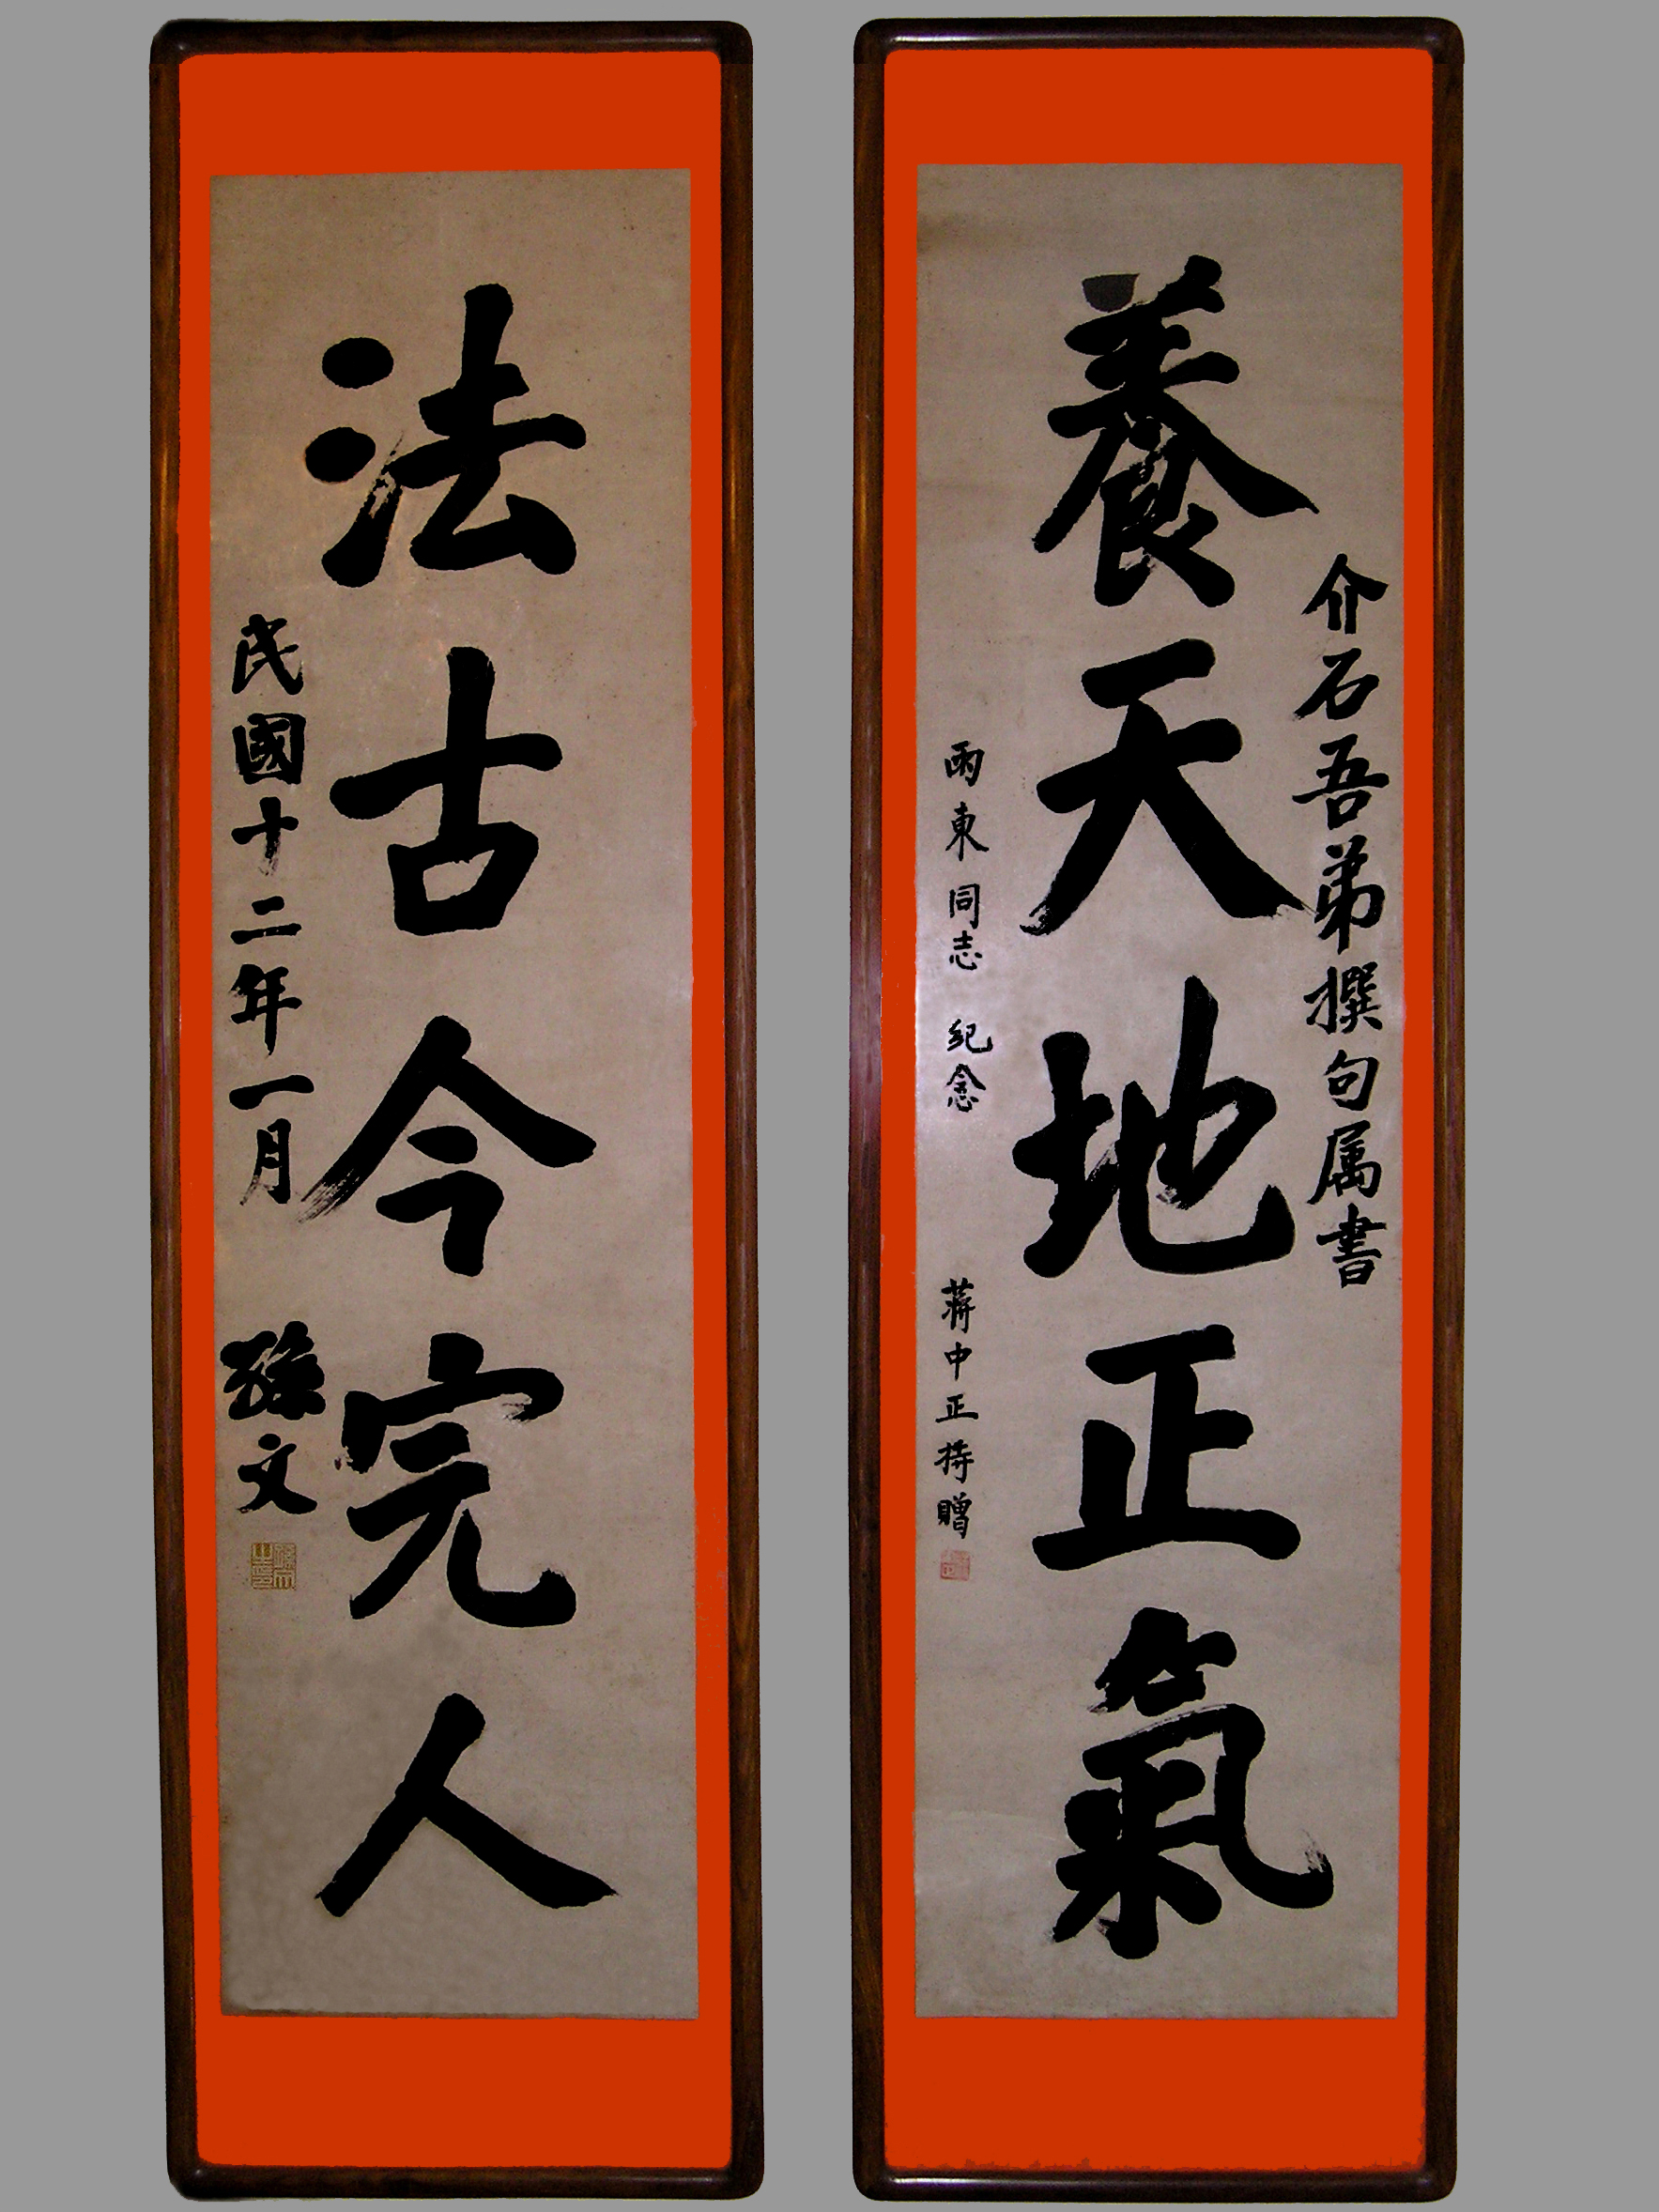 介石吾弟撰句属書
養天地正氣
雨東同志 紀念 蔣中正 持贈
法古今完人
民國十二年一月 孫文